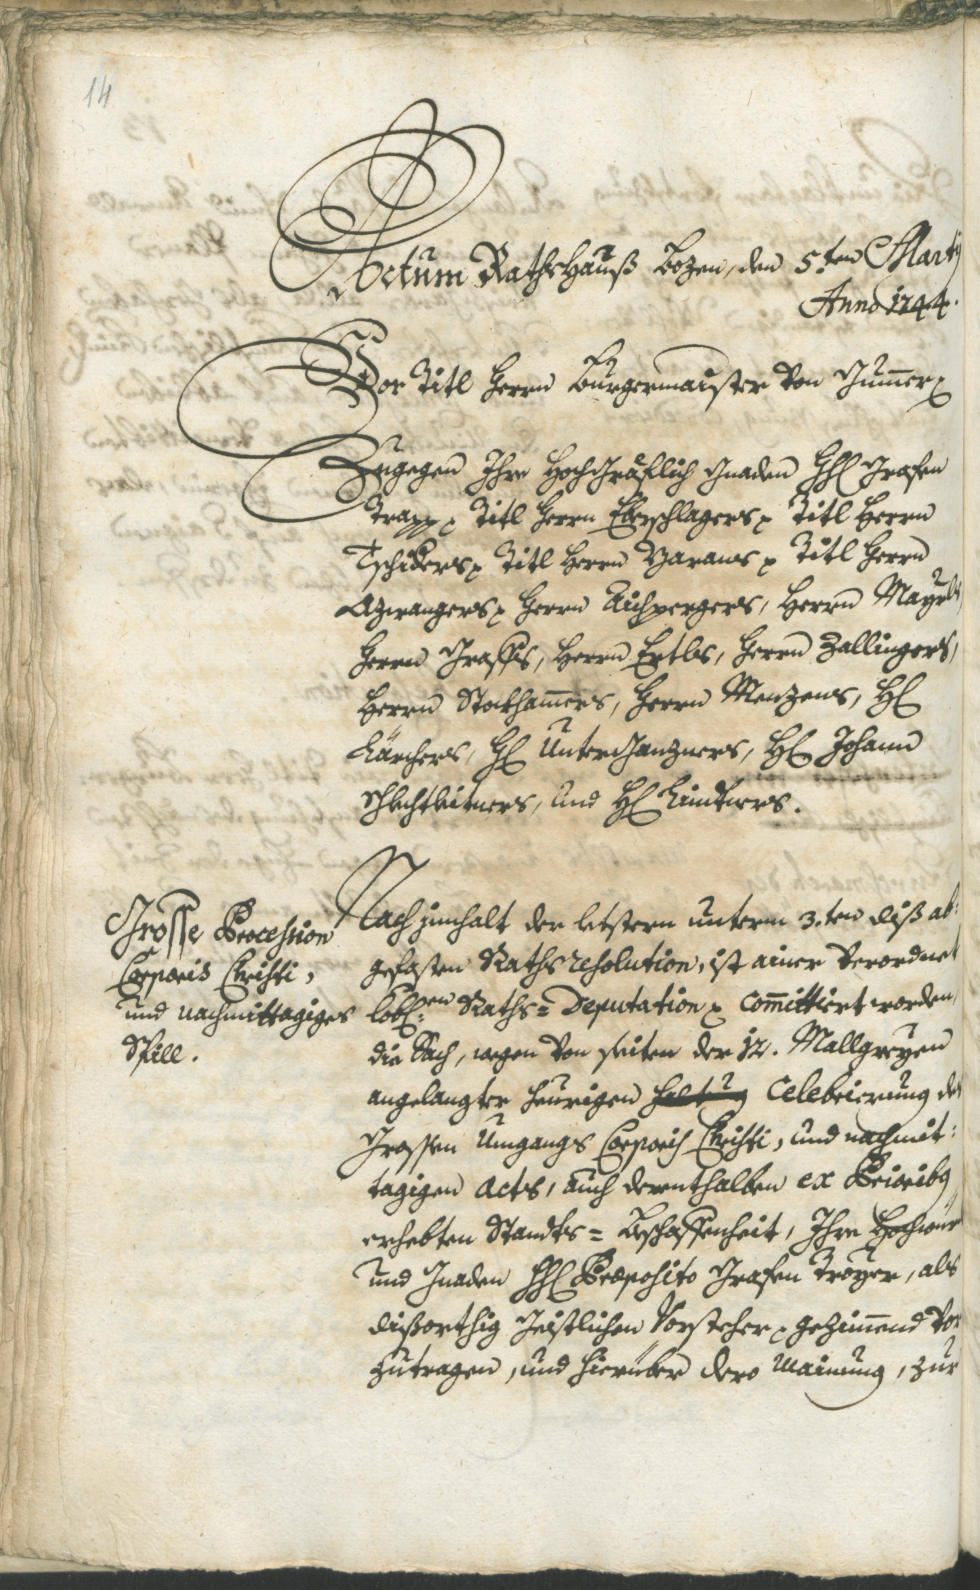 14
Actum Rathshauß Bozen, den 5.ten Martÿ
Anno 1744.
Vor Titl Herrn Burgermaister von Jummer ꝛ
Zugegen Ihro Hochgräflich Gnaden HH Grafen
Trapp ꝛ Titl Herrn Eberschlagers ꝛ Titl Herrn
Tschiders ꝛ Titl Herrn Zaraus ꝛ Titl Herrn
Azwangers ꝛ Herrn Aichpergers, Herrn Mayrls,
Herrn Graffs, Herrn Ertls, Herrn Zallingers,
Herrn Stockhamers, Herrn Menzens, H
Kärchers, H Unterganzners, H Johann
Schlechtleitners, und H Kindtners.
Grosse Procession
Corporis Christi,
und nachmittagiges
Spill.
Nach zinnhalt der letstern unterm 3.ten diß ab:
gefasten Raths resolution, ist ainer verordnet
löbl:en Raths= Deputation ꝛ committiert worden,
die Sach, wegen von seiten der 12. Mallgreyen
angelangter heurigen haltung Celebrierung des
Grossen Umgangs Corporis Christi, und nachmit:
tagigen Acts, auch derenthalben ex Prioribus
erhebten Standts= Beschaffenheit, Ihro Hochwür
und Gnaden HH Præposito Grafen Troyer, als
dißorthig Geistlichen Vorsteher ꝛ gezimmend vor
zutragen, und hierüber dero Mainung, zur